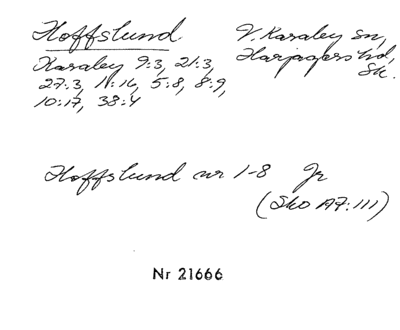 Hoffslund V. Karaby Sn,
Karaby 9:3, 21:3, Harjagers hd,
27:3, 11:16, 5:8, 8:9, Sk.
10:17, 38:4
Hoffslund nr 1-8 Jr
(Sko A7:111)
Nr 21666